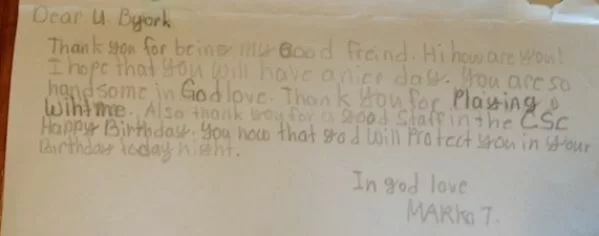 Dear U. Byork
Thank you for being my Good freind. Hi how are you!
I hope that you will have a nice day. You are so
handsome in God love. Thank you for Plassing
wiht me. Also thank you for a good staff in the CSC
Happy Birthday. You now that god will Protect you in your
Birthday today night.
In god love
MARko T.